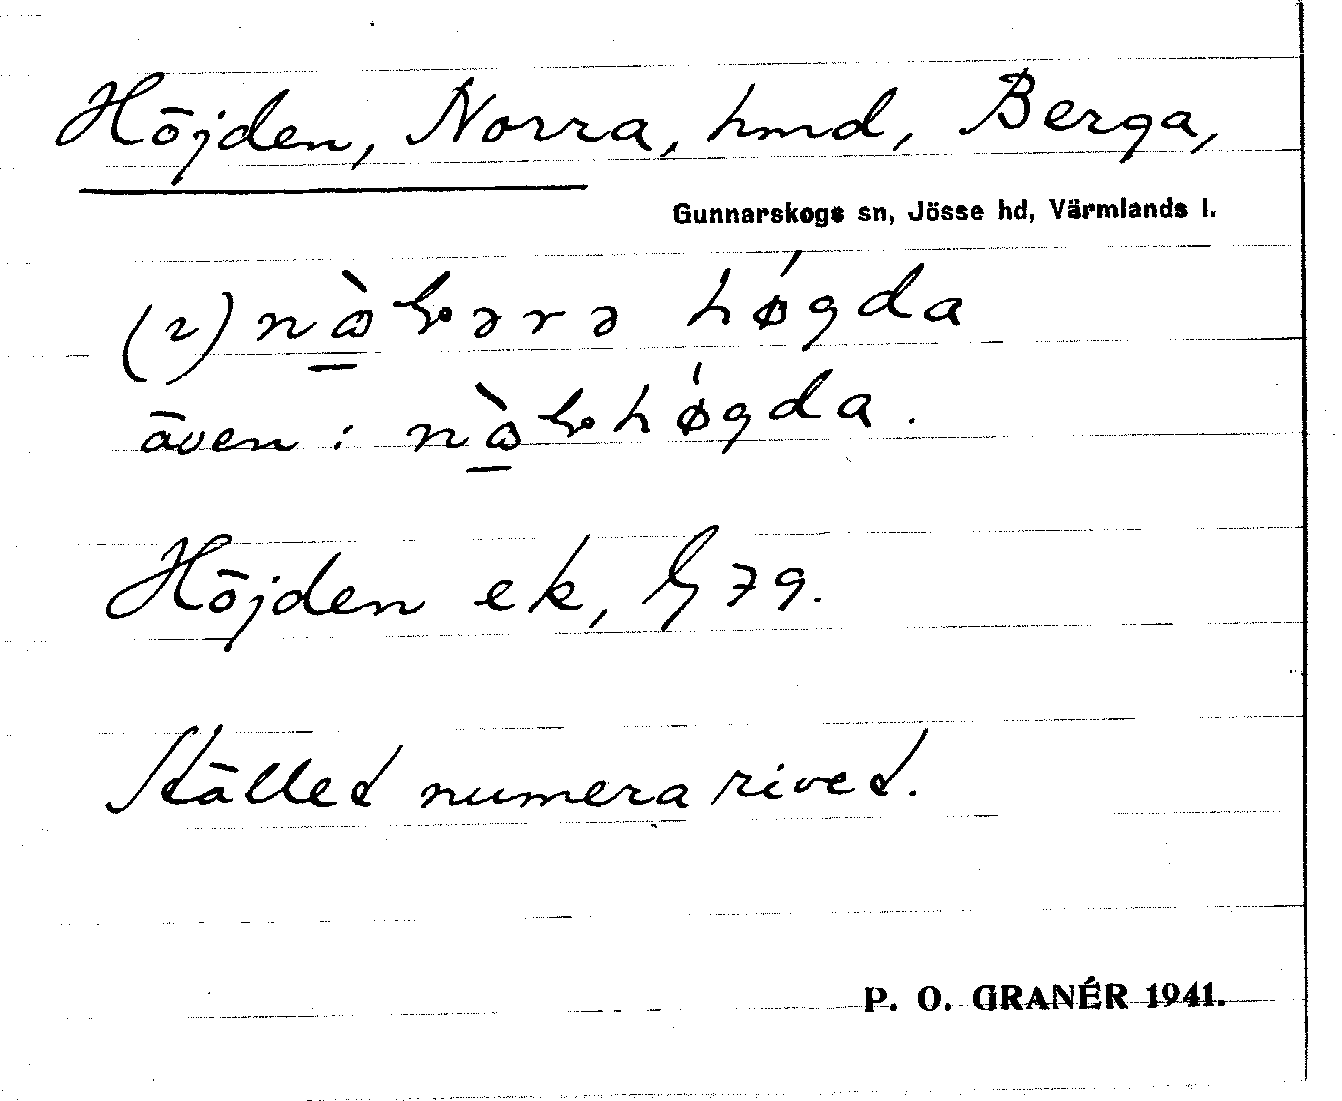 Höjden, Norra, hmd, Berga,
Gunnarskogs sn, Jösse hd, Värmlands l.
høgda
även:
Höjden ek, G 79.
Stället numera rivet.
P. O. GRANÉR 1941.